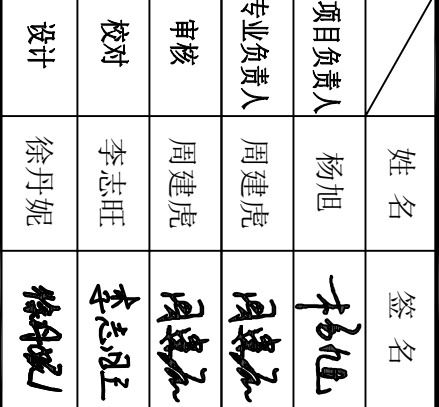 姓名 签名
项目负责人 杨旭 杨旭
专业负责人 周建虎 周建虎
审核 周建虎 周建虎
校对 李志旺 李志旺
设计 徐丹妮 徐丹妮